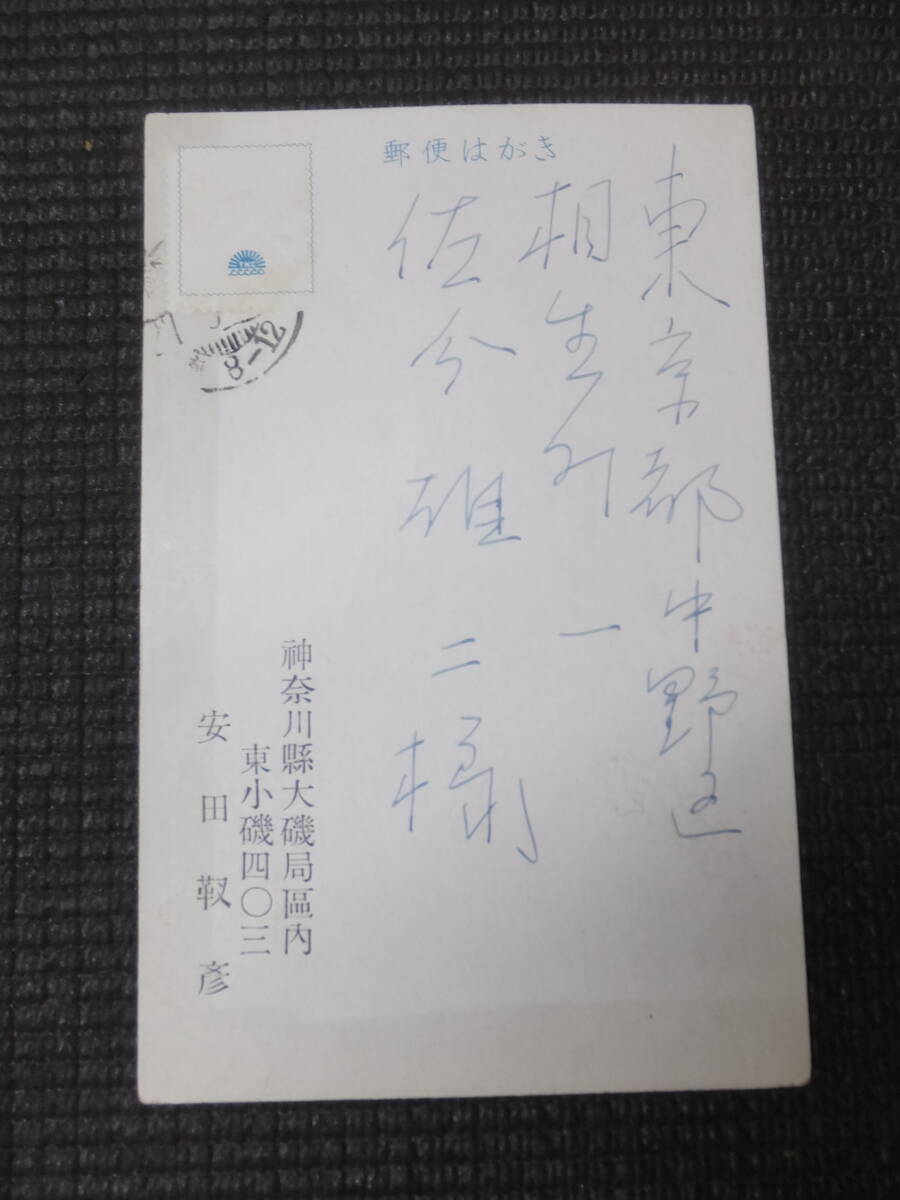 郵便はがき
東京都中野区
相生町一
佐分雄二様
神奈川縣大磯局區內
東小磯四〇三
安田靫彥
8-12